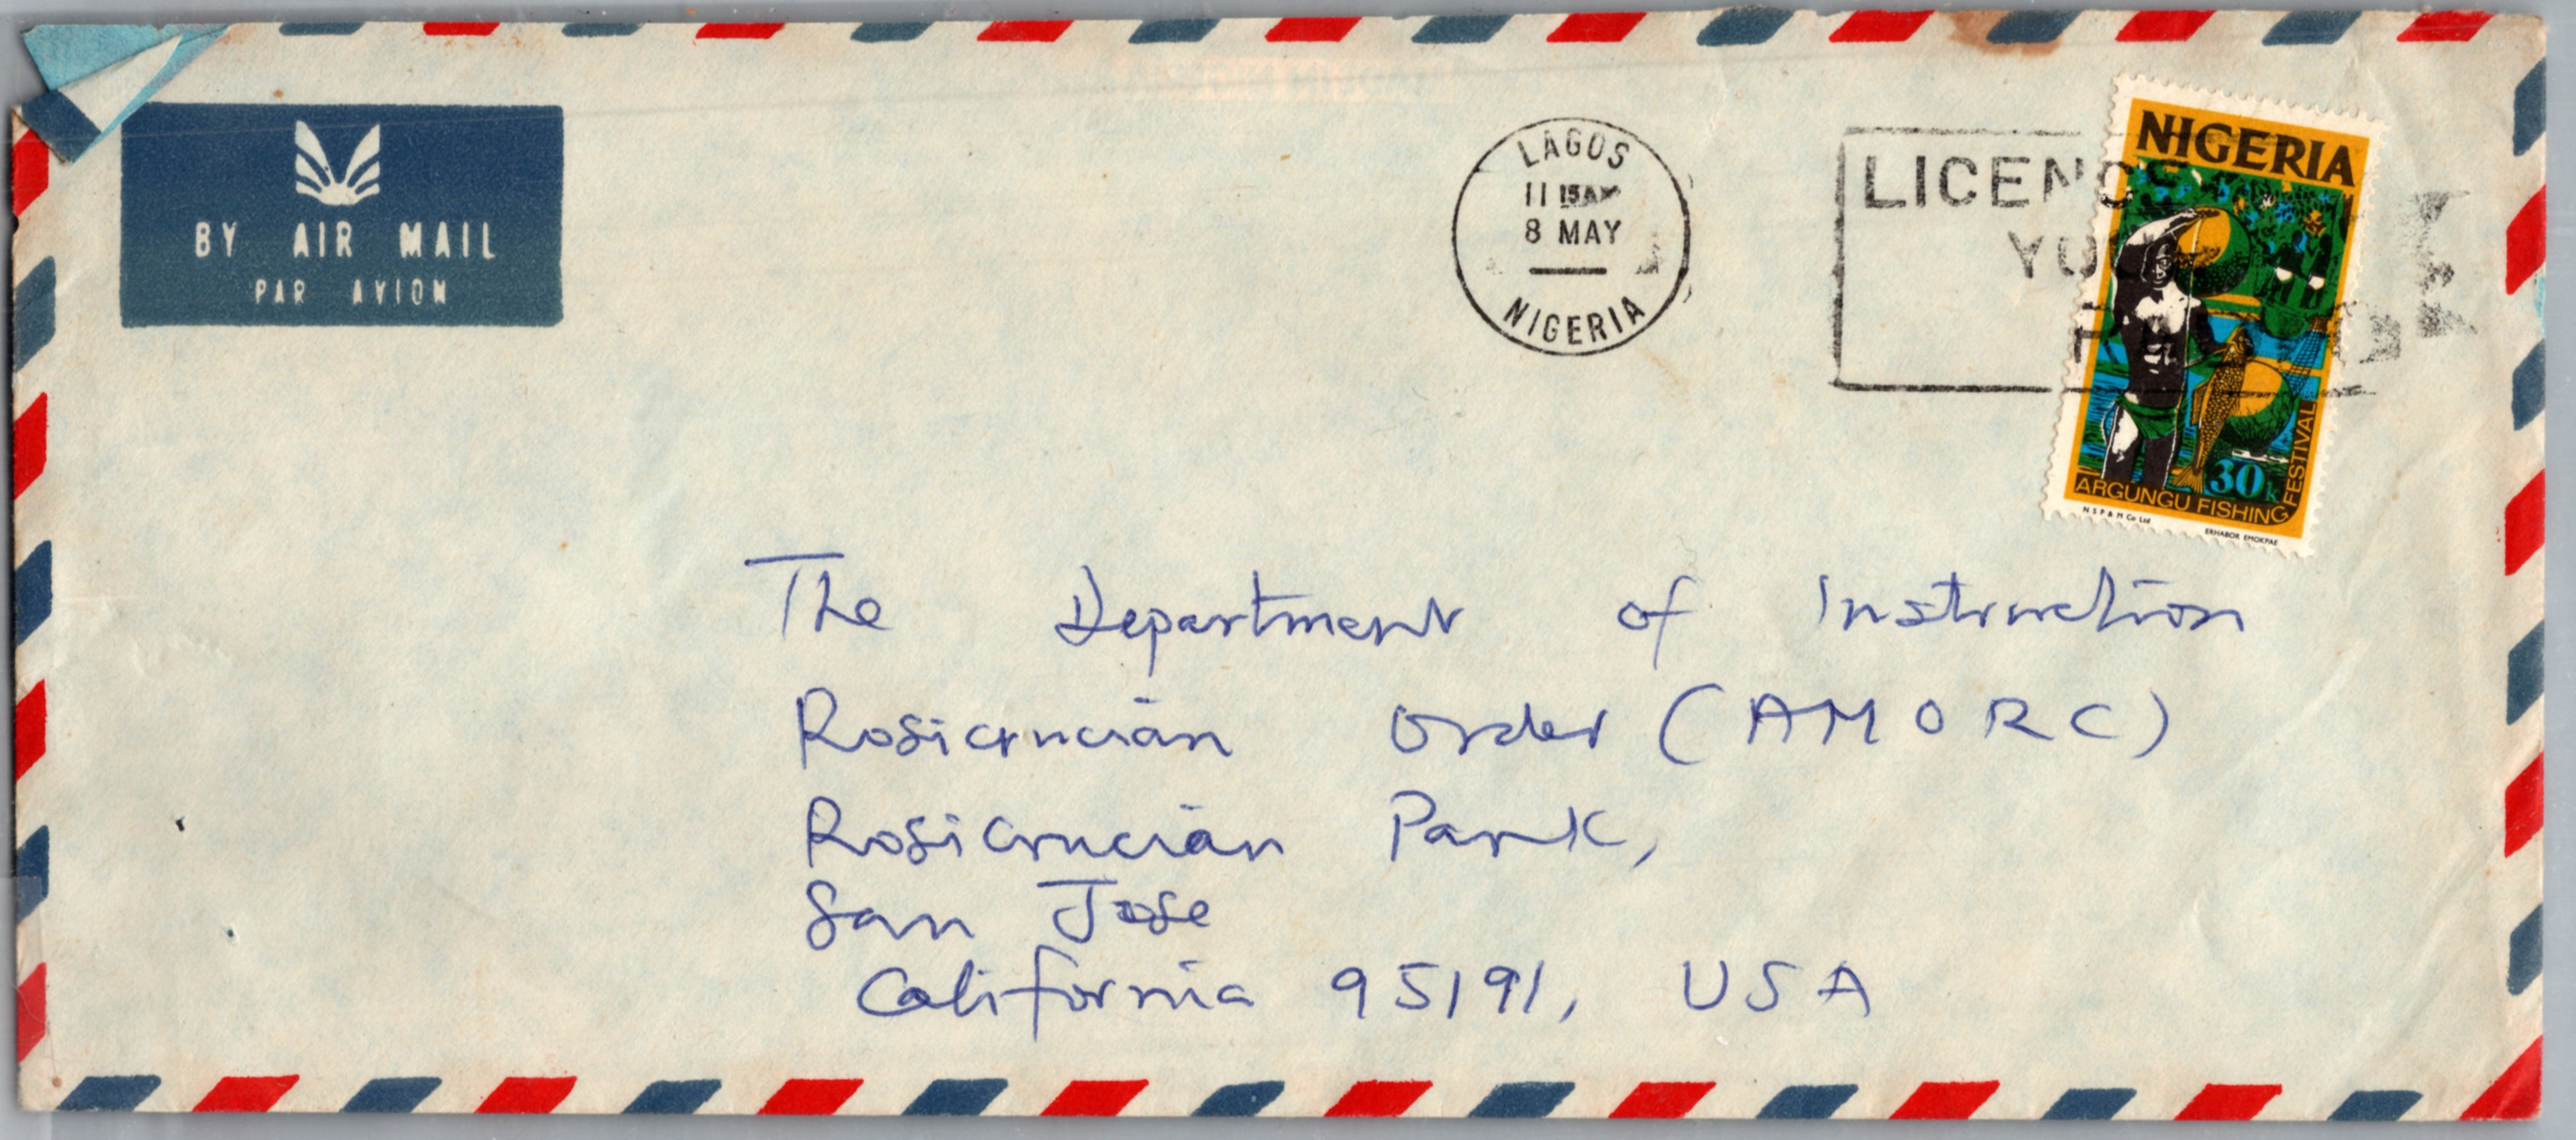 BY AIR MAIL
PAR AVION
LAGOS
11 15 AM
8 MAY
NIGERIA
LICENC
YO
NIGERIA
30k
ARGUNGU FISHING FESTIVAL
N S P & M Co Ltd
ERHABOR EMOKPAE
The Department of Instruction
Rosicrucian Order (AMORC)
Rosicrucian Park,
San Jose
California 95191, USA